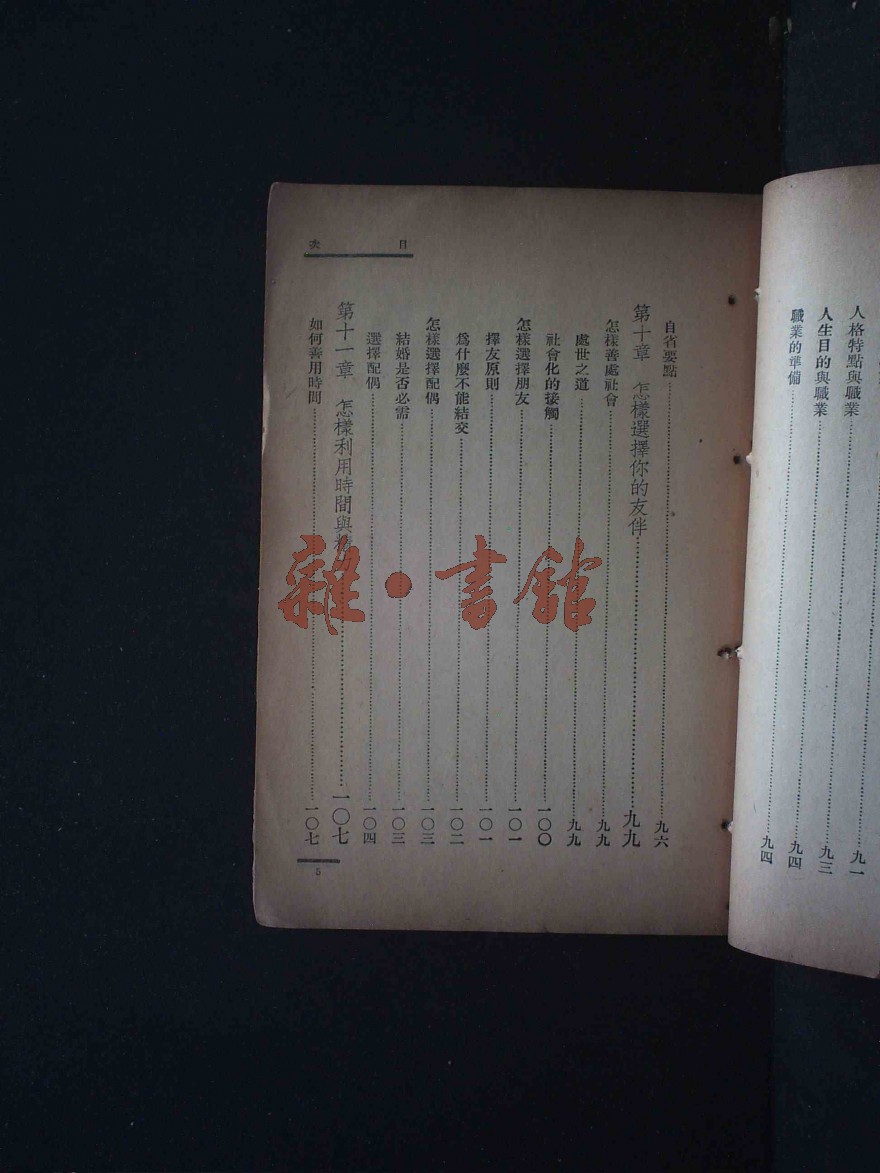 人格特點與職業……九一
人生目的與職業……九三
職業的準備……九四
九四
目次
自省要點……九六
第十章　怎樣選擇你的友伴……九九
怎樣善處社會……九九
處世之道……九九
社會化的接觸……一〇〇
怎樣選擇朋友……一〇一
擇友原則……一〇一
爲什麼不能結交……一〇二
怎樣選擇配偶……一〇三
結婚是否必需……一〇三
選擇配偶……一〇四
第十一章　怎樣利用時間與……一〇七
如何善用時間……一〇七
5
雜·書館